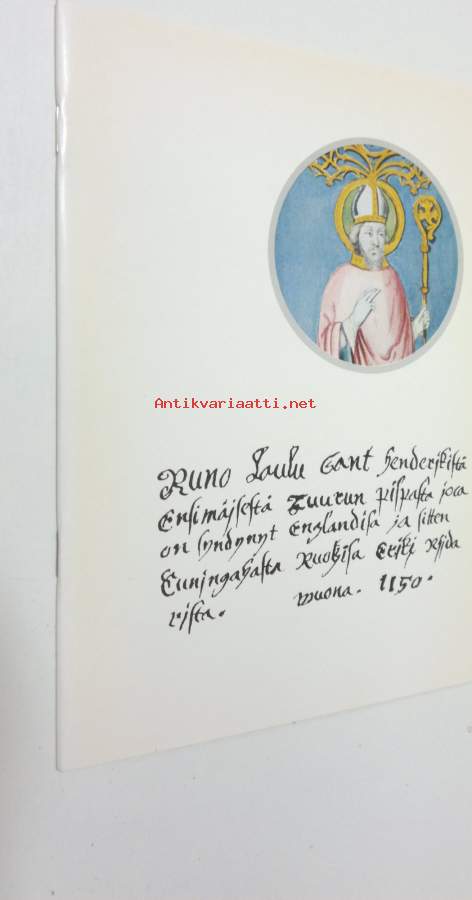 Antikvariaatti.net
Runo Laulu Sant Henderjkistä
Ensimäjsestä Tuurun pispasta joca
on syndynyt Englandisa ja sitten
Cuningahasta Ruotzisa Erjkj Rjda
rista. wuona. 1150.